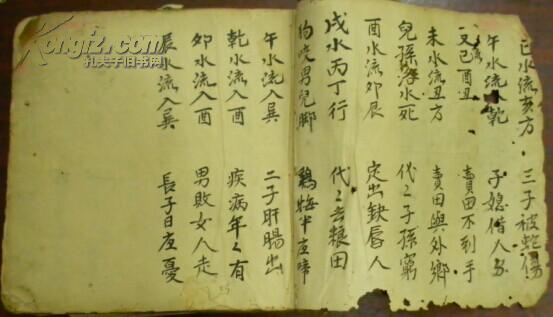 巳水流亥方 三子被蛇傷
午水流乾 子媳偕人
又己酉丑 賣田不到手
未水流丑方 賣田與外鄉
兒孫落水死 代々子孫窮
酉水流卯辰 定出缺唇人
戌水丙丁行 代々去粮田
狗咬男兒脚 鷄悔半夜啼
午水流入巽 二子肝腸出
乾水流入酉 疾病年々有
卯水流入酉 男敗女人走
辰水流入巽 長子日夜憂
Kongfz.com
孔夫子旧书网